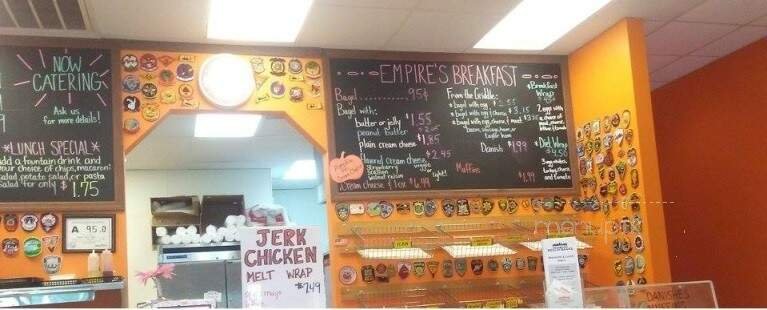 NOW
CATERING
Ask us
for more details!
*LUNCH SPECIAL*
add a fountain drink and
your choice of chips, macaroni
salad, potato salad, or pasta
salad for only $1.75
A 95.0
JERK
CHICKEN
MELT WRAP
EMPIRE'S BREAKFAST
Bagel 95¢
Bagel with:
butter or jelly $1.55
peanut butter
plain cream cheese $1.85
flavored cream cheese $2.45
Strawberry
walnut raisin
veggie
or light!
Cream cheese & lox $6.99
From the Griddle:
*bagel with egg
*bagel with egg & cheese $3.15
*bagel with egg, cheese, & meat
Danish $1.99
Muffins $1.99
Breakfast
Wrap
2 eggs with
a choice of
meat, cheese,
Diet Wrap
3 egg whites,
turkey, cheese
and tomato
DANISHES
MUFFINS